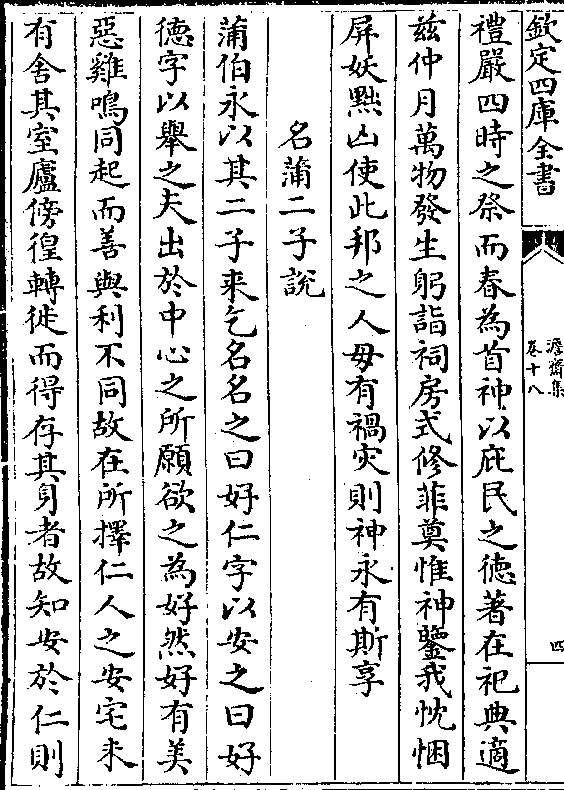 欽定四庫全書
卷十八
四
禮嚴四時之祭而春為首神以庇民之德著在祀典適
兹仲月萬物發生躬詣祠房式修菲奠惟神鑒我忱悃
屏妖黜凶使此邦之人毋有禍灾則神永有斯享
名蒲二子說
蒲伯永以其二子来乞名名之曰好仁字以安之曰好
德字以舉之夫出於中心之所願欲之為好然好有美
惡雞鳴同起而善與利不同故在所擇仁人之安宅未
有舍其室廬傍徨轉徙而得存其身者故知安於仁則